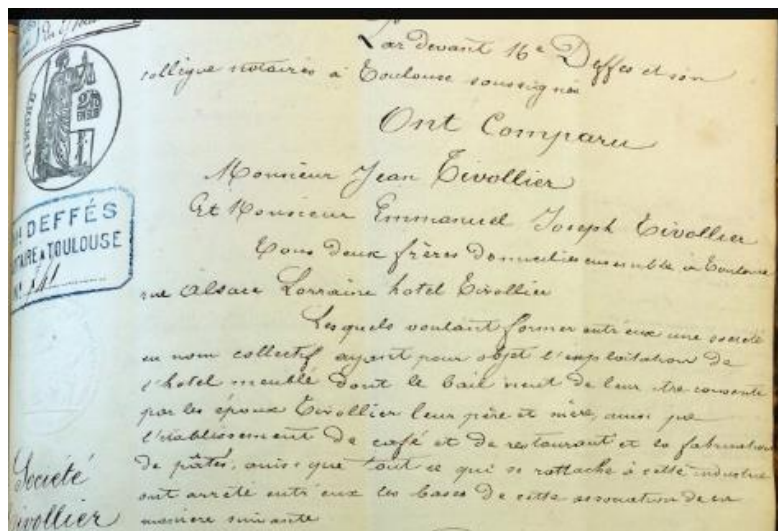 Par devant Me Deffès et son
collègue notaires à Toulouse soussignés
Ont Comparu
Monsieur Jean Tivollier
Et Monsieur Emmanuel Joseph Tivollier
Tous deux frères domiciliés ensemble à Toulouse
rue Alsace Lorraine hotel Tivollier
Lesquels voulant former entr'eux une société
en nom collectif ayant pour objet l'exploitation de
l'hotel meublé dont le bail vient de leur être consenti
par les époux Tivollier leur père et mère, ainsi que
l'établissement de café et de restaurant et la fabrication
de pâtés, ainsi que tout ce qui se rattache à cette industrie
ont arrêté entr'eux les bases de cette association de la
manière suivante
DEFFÉS
NOTAIRE A TOULOUSE
Société
Tivollier